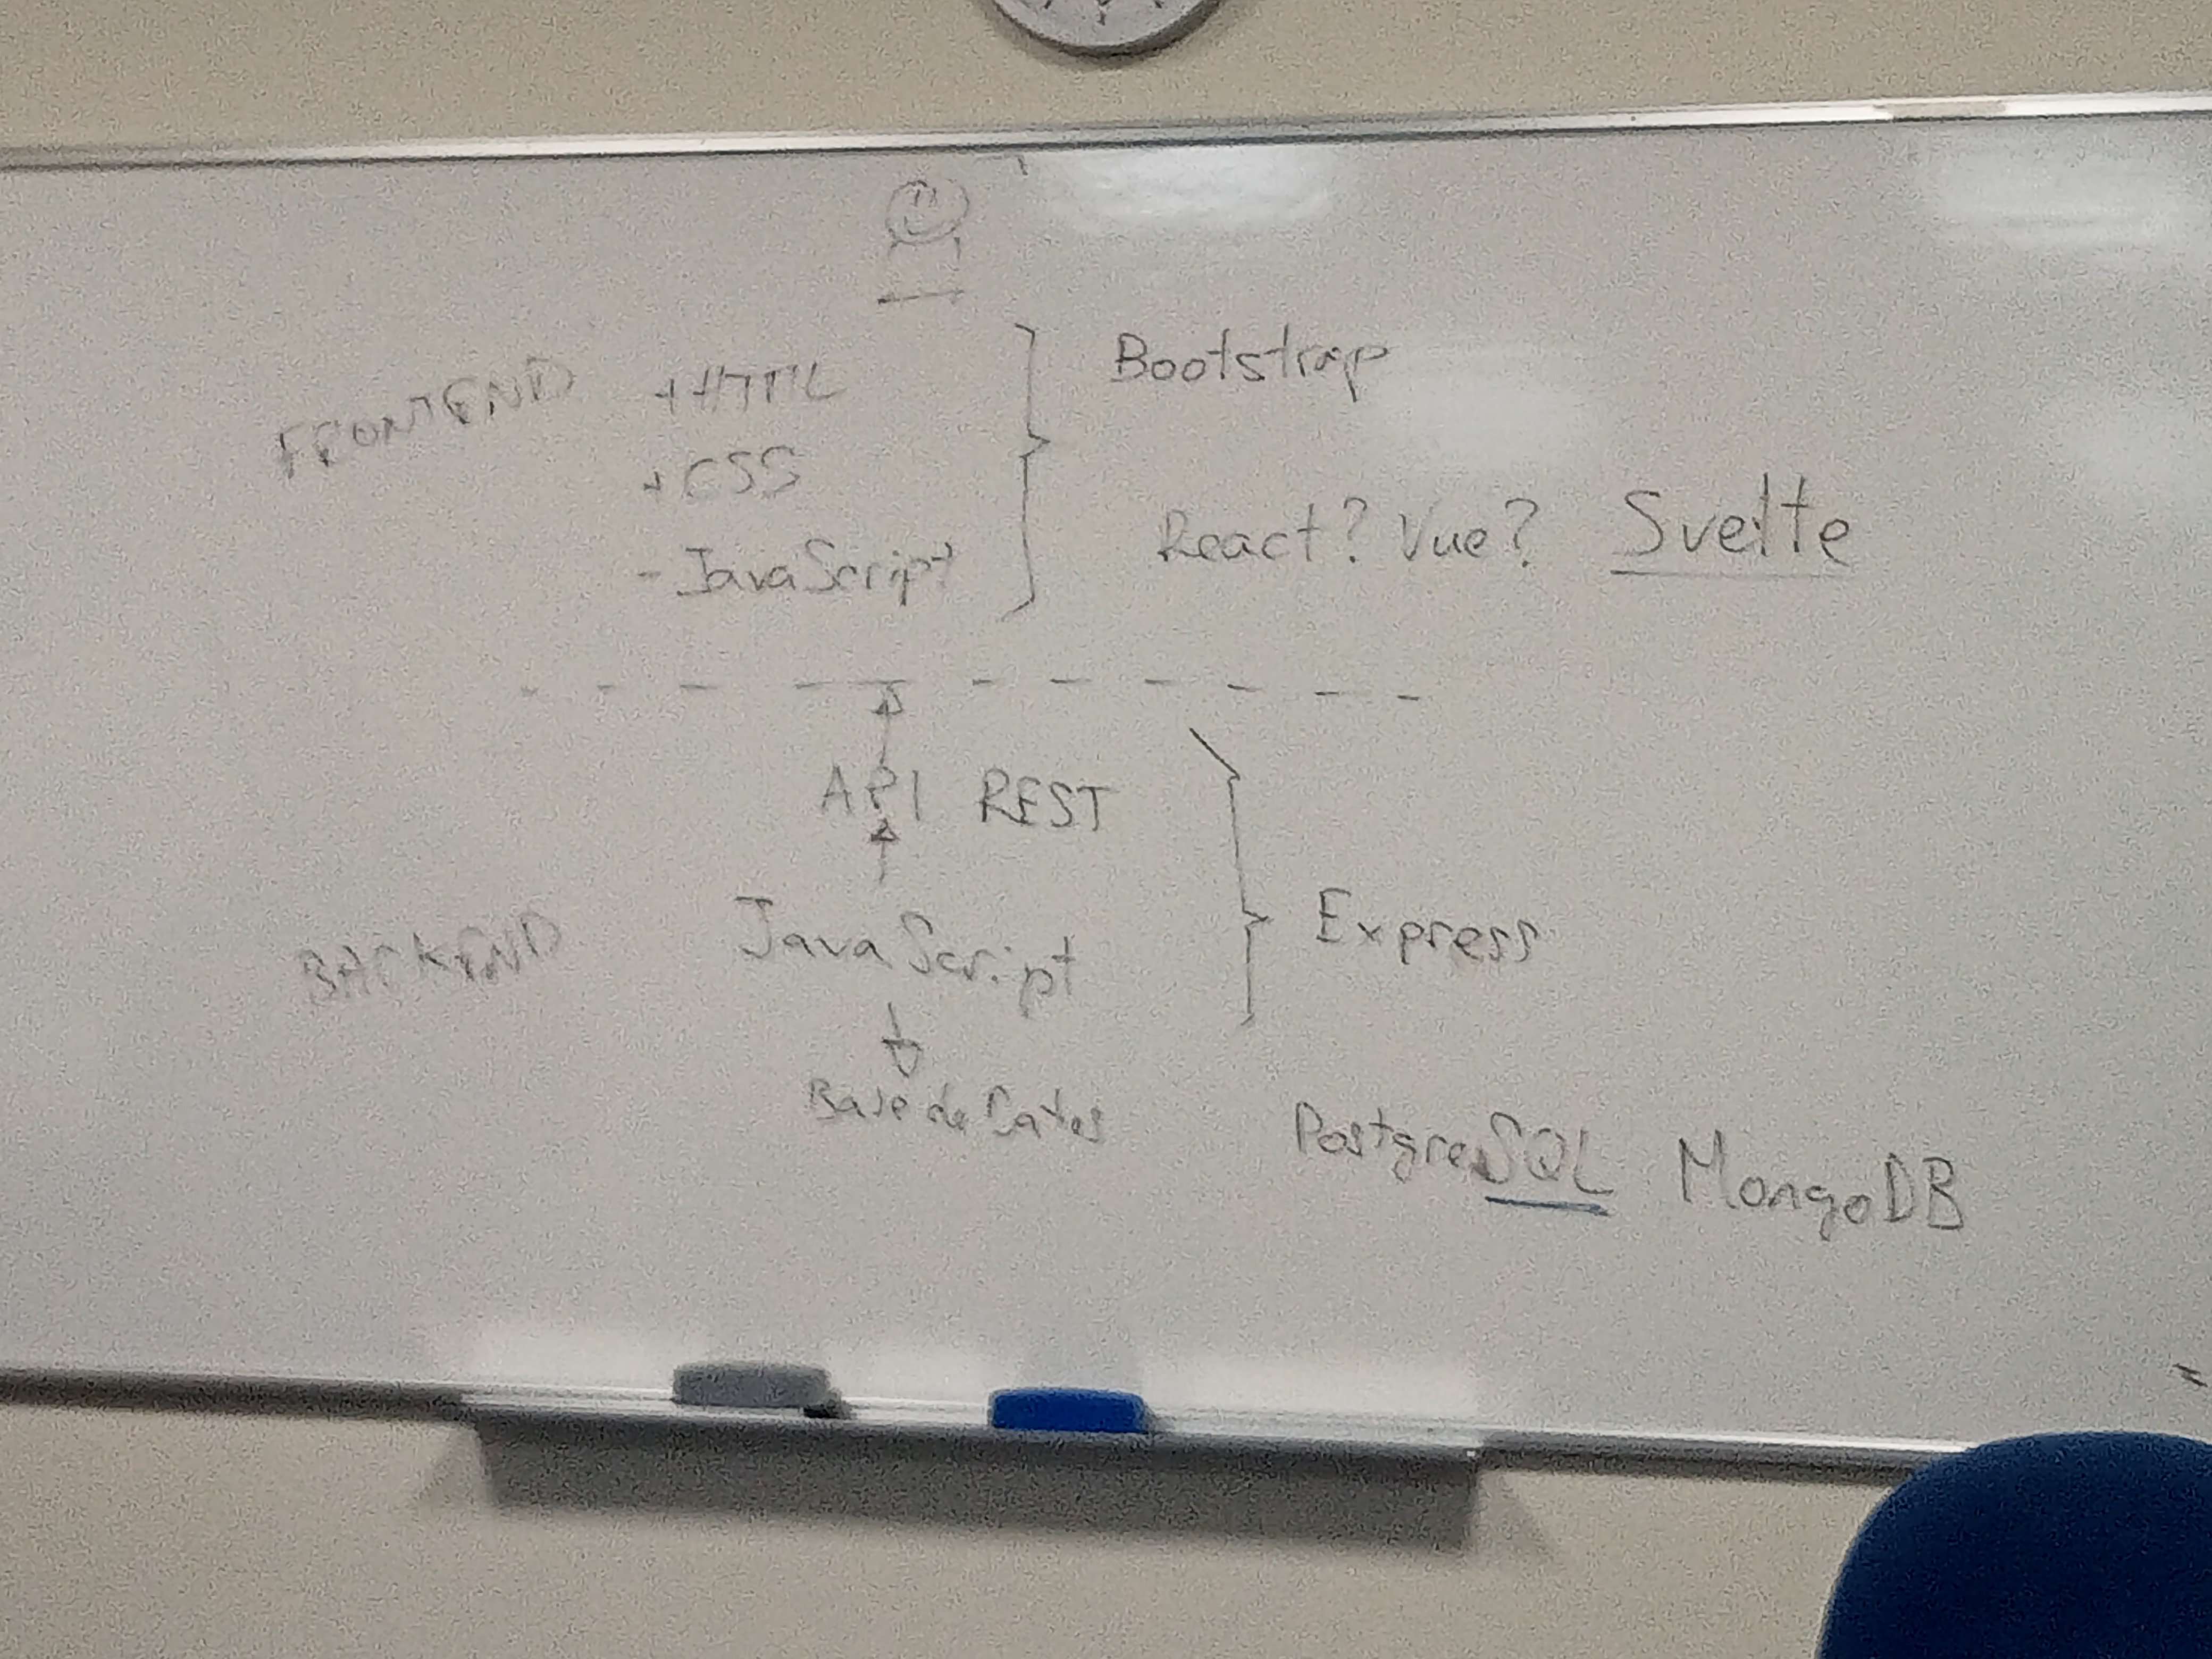 FRONTEND +HTML Bootstrap
+CSS
-JavaScript React? Vue? Svelte
API REST
BACKEND JavaScript Express
Base de Datos PostgreSQL MongoDB